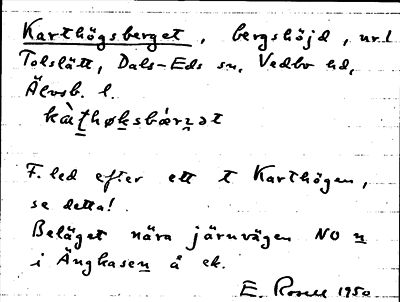 Karthögsberget, bergshöjd, ur.l
Tolslätt, Dals-Eds sn, Vedbo hd,
Älvsb. l.
kàt̠høk̠sbár̠n̠ət
F. led efter ett t Karthögen,
se detta!
Beläget nära järnvägen NO n
i Ängkasen å ek.
E. Rosell 1950